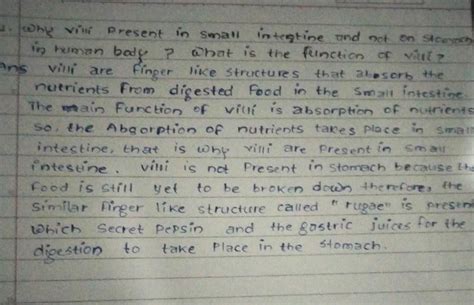 2. Why villi present in small intestine and not on stomach
in human body ? What is the function of villi?
Ans villi are finger like structures that absorb the
nutrients from digested food in the small intestine.
The main function of villi is absorption of nutrients
so, the Absorption of nutrients takes place in small
intestine, that is why villi are present in small
intestine. villi is not present in stomach because the
food is still yet to be broken down therefore, the
similar finger like structure called "rugae" is present
which secret pepsin and the gastric juices for the
digestion to take place in the stomach.